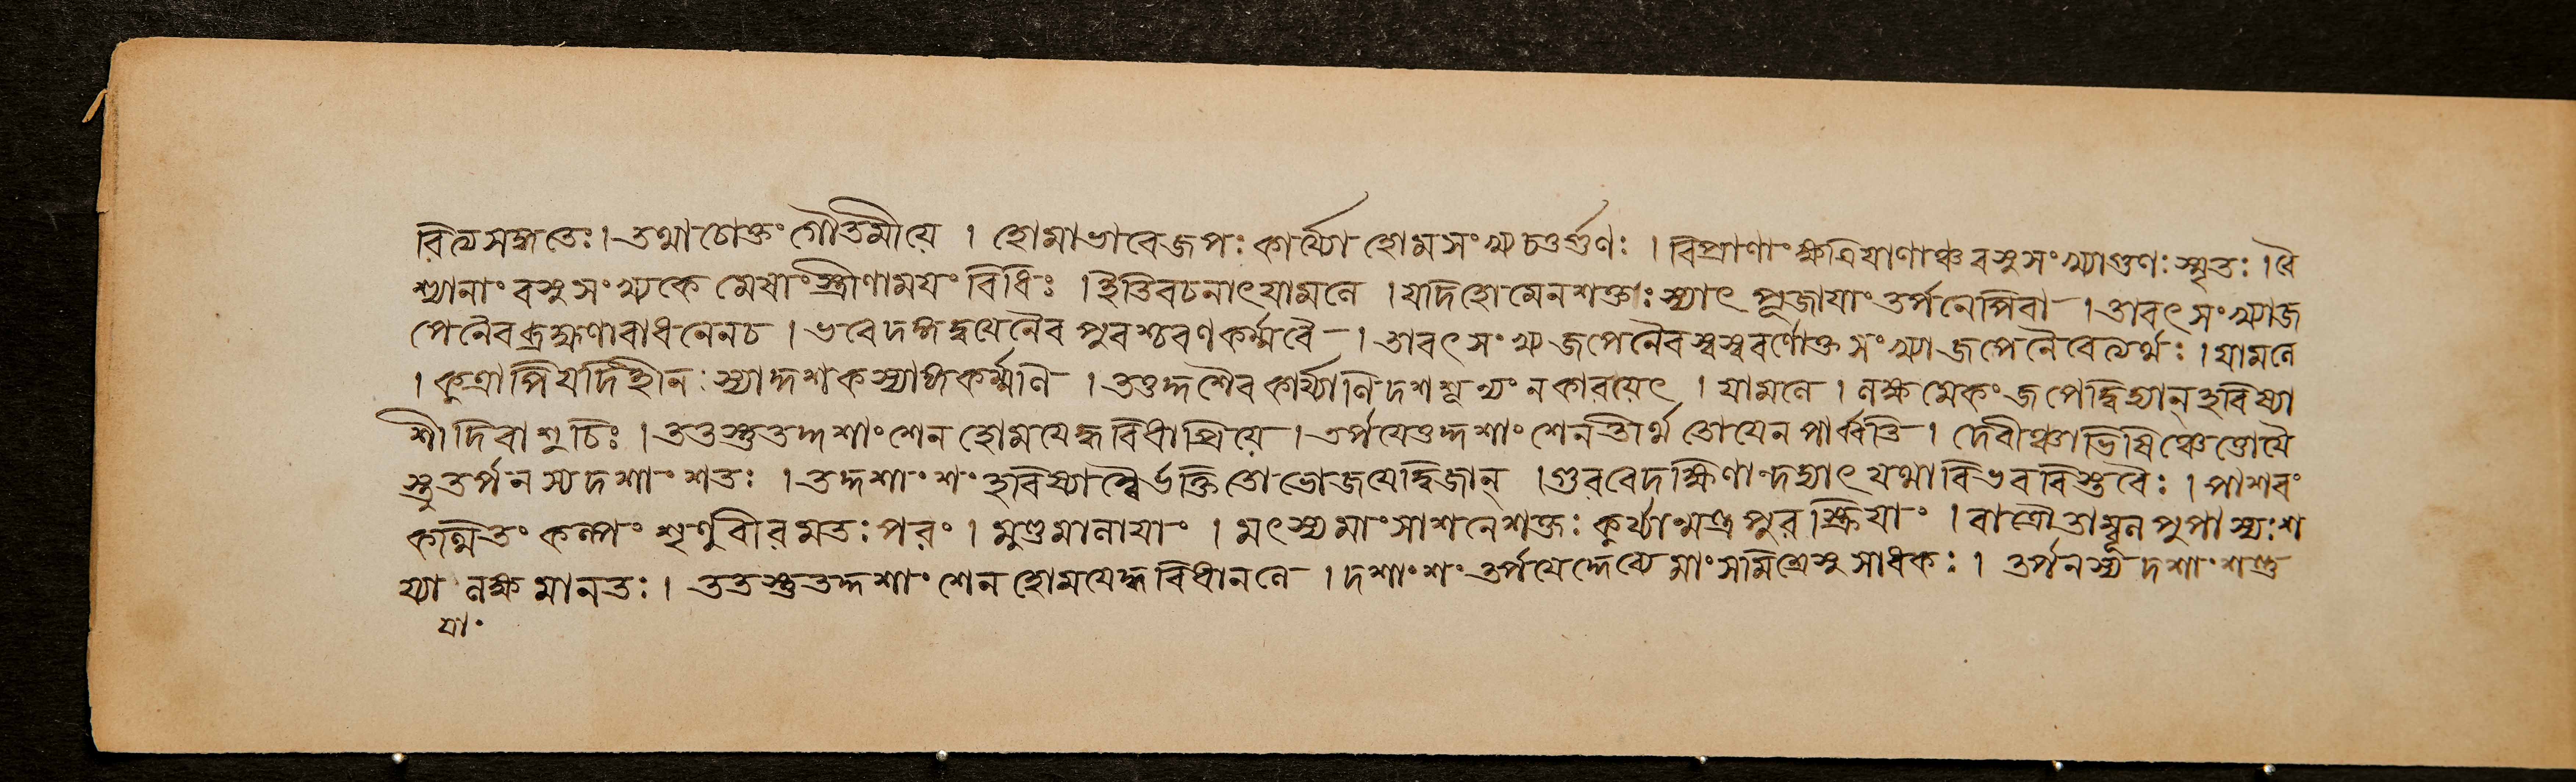 বিত্যসঙ্গতেঃ। তথাচোক্তং গৌতমীয়ে । হোমাভাবেজপঃ কার্য্যো হোমসংখ্যচতুর্গুণঃ । বিপ্রাণাং ক্ষত্রিয়াণাঞ্চ বসুসংখ্যাগুণঃ স্মৃতঃ । বৈ
শ্যানাং বসুসংখ্যকে মেষাংস্ত্রীণাময়ং বিধিঃ । ইতিবচনাৎ যামলে । যদিহোমেনশক্তঃ স্যাৎ পূজায়াং তর্পনেপিবা । তাবৎ সংখ্যাজ
পেনৈব ব্রাহ্মণারাধনেনচ । ভবেদঙ্গদ্বয়েনৈব পুরশ্চরণকর্ম্মবৈ । তাবৎ সংখ্য জপেনৈবস্বস্ববর্ণোক্ত সংখ্যা জপেনৈবেত্যর্থঃ । যামলে
। কুত্রাপিযদিহীনঃ স্যাদ্দশকস্যাঙ্গকর্ম্মণি । ততুদ্দশৈবকার্য্যাণিদশন্যূনং নকারয়েৎ । যামলে । লক্ষমেকং জপেদ্বিদ্বান্ হবিষ্যা
শী দিবাশুচিঃ । ততস্তুতদ্দশাংশেন হোময়েদ্ধবিষাপ্রিয়ে । তর্পয়েত্তদ্দশাংশেনতীর্থ তোয়েন পার্ব্বতি । দেবীঞ্চাভিষিঞ্চেত্তোয়ৈ
স্তুতর্পনস্যদশাংশতঃ । তদ্দশাংশং হবিষ্যান্নৈর্ভক্তিতো ভোজয়েদ্বিজান্ । গুরবেদক্ষিণান্দদ্যাৎ যথাবিভববিস্তরৈঃ । পাশবং
কল্পিতং কল্পং শৃণুবীরমতঃপরং । মুণ্ডমালায়াং । মৎস্যমাংসাশনেশক্তঃ কুর্য্যান্মন্ত্রপুরস্ক্রিয়াং । রাত্রৌতাম্বূলপুপাস্যঃশ
য্যা লক্ষমানতঃ । ততস্তুতদ্দশাংশেন হোময়েদ্ধবিষাননে । দশাংশং তর্পয়েদ্দেব্যে মাংসমিশ্রেসুসাধকঃ । তর্পনস্য দশাংশন্তু
য্যাং